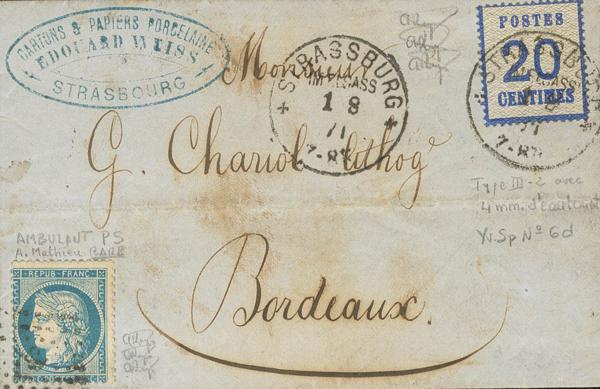 CARTONS & PAPIERS PORCELAINE
EDOUARD WEISS
STRASBOURG
Monsieur
STRASSBURG
IM ELSASS
1 8
71
POSTES
20
CENTIMES
STRASSBURG
G. Chariol lithog
Type III-2 avec
4 mm. d'écartement
Yv. Sp Nº 6d
AMBULANT PS
A. Mathieu GARE
REPUB. FRANC.
Bordeaux.